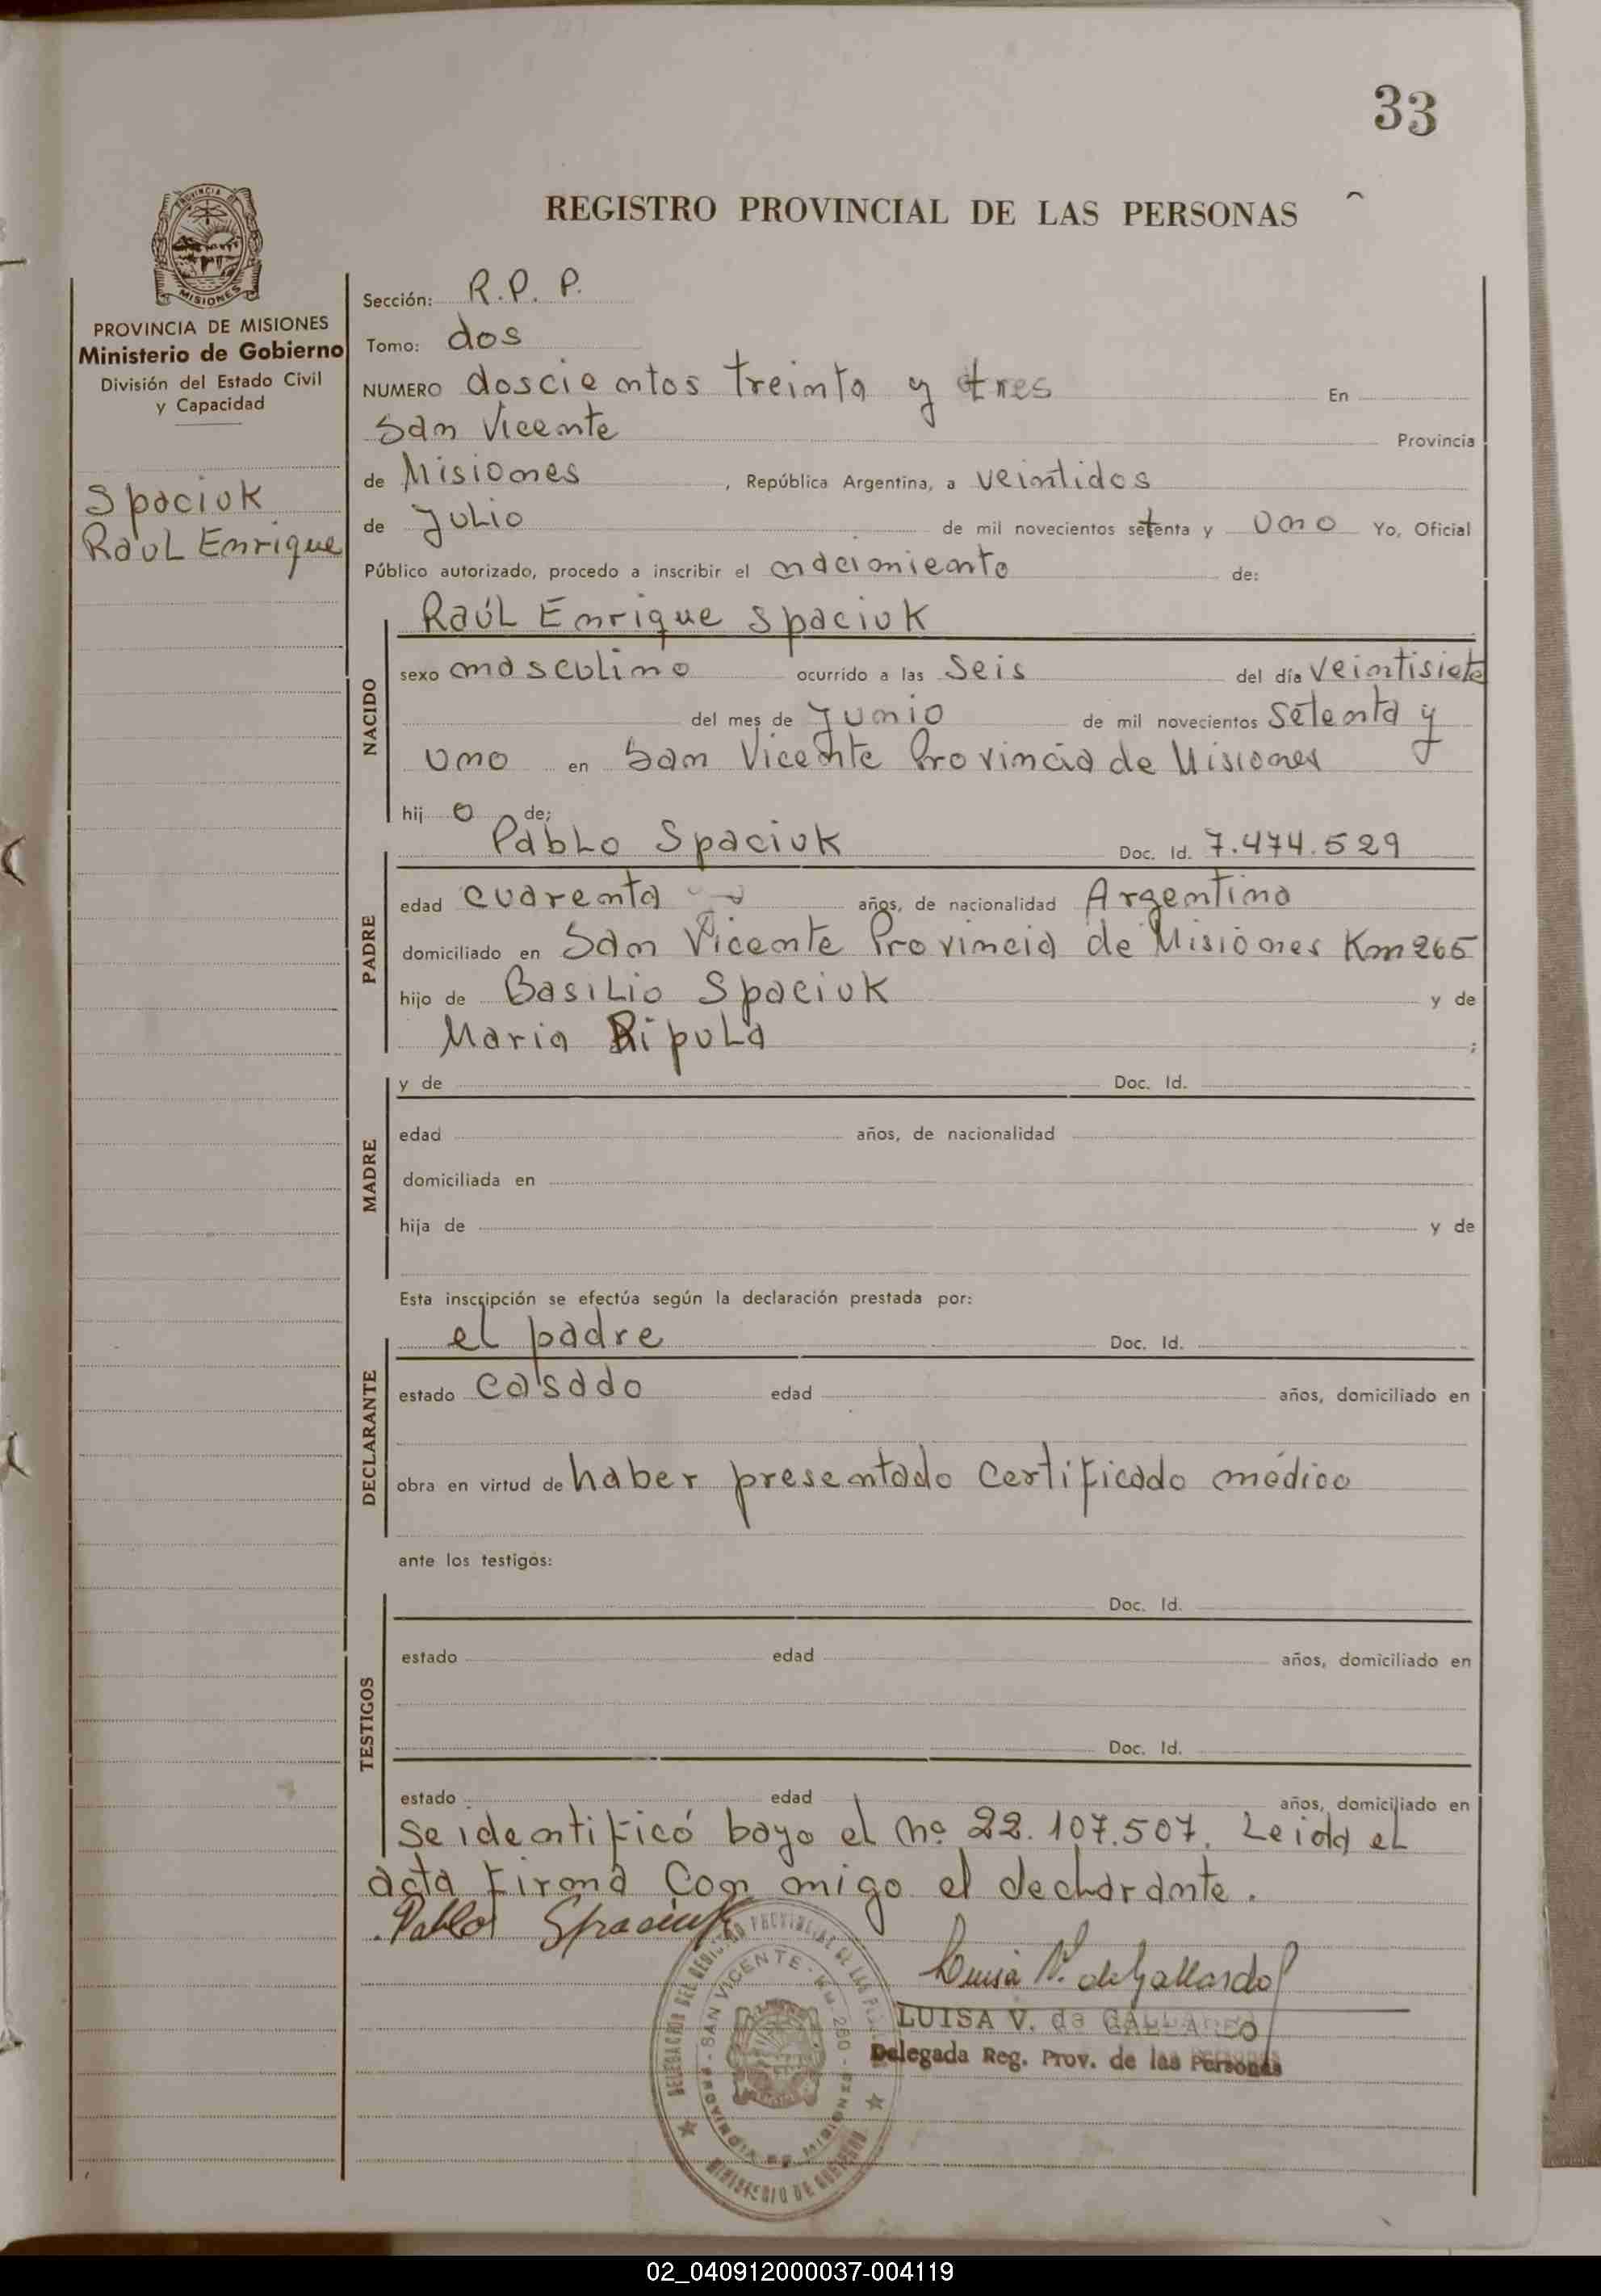 33
REGISTRO PROVINCIAL DE LAS PERSONAS
PROVINCIA MISIONES
PROVINCIA DE MISIONES
Ministerio de Gobierno
División del Estado Civil
y Capacidad
Spaciuk
Raul Enrique
Sección: R.P.P.
Tomo: dos
NUMERO doscientos treinta y tres En
San Vicente Provincia
de Misiones, República Argentina, a veintidos
de Julio de mil novecientos setenta y uno Yo, Oficial
Público autorizado, procedo a inscribir el nacimiento de:
NACIDO
Raúl Enrique Spaciuk
sexo masculino ocurrido a las seis del día veintisiete
del mes de Junio de mil novecientos setenta y
uno en San Vicente Provincia de Misiones
hij o de;
PADRE
Pablo Spaciuk Doc. Id. 7.474.529
edad cuarenta años, de nacionalidad Argentina
domiciliado en San Vicente Provincia de Misiones Km 265
hijo de Basilio Spaciuk y de
Maria Ripula ;
MADRE
y de Doc. Id.
edad años, de nacionalidad
domiciliada en
hija de y de
Esta inscripción se efectúa según la declaración prestada por:
DECLARANTE
el padre Doc. Id.
estado casado edad años, domiciliado en
obra en virtud de haber presentado certificado médico
ante los testigos:
TESTIGOS
Doc. Id.
estado edad años, domiciliado en
Doc. Id.
estado edad años, domiciliado en
se identificó bajo el nº 22.107.507. Leida el
acta firma con migo el declarante.
Pablo Spaciuk
Luisa V. de Gallardo
LUISA V. de GALLARDO
Delegada Reg. Prov. de las Personas
DELEGACION DEL REGISTRO PROVINCIAL DE LAS
SAN VICENTE - Km. 260 - PROVINCIA DE MISIONES
MINISTERIO DE GOBIERNO
02_040912000037-004119